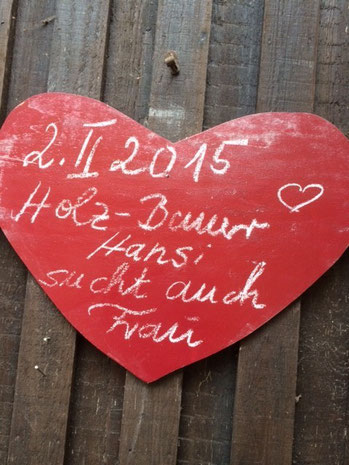 2. II 2015
Holz-Bauer
Hansi
sucht auch
Frau